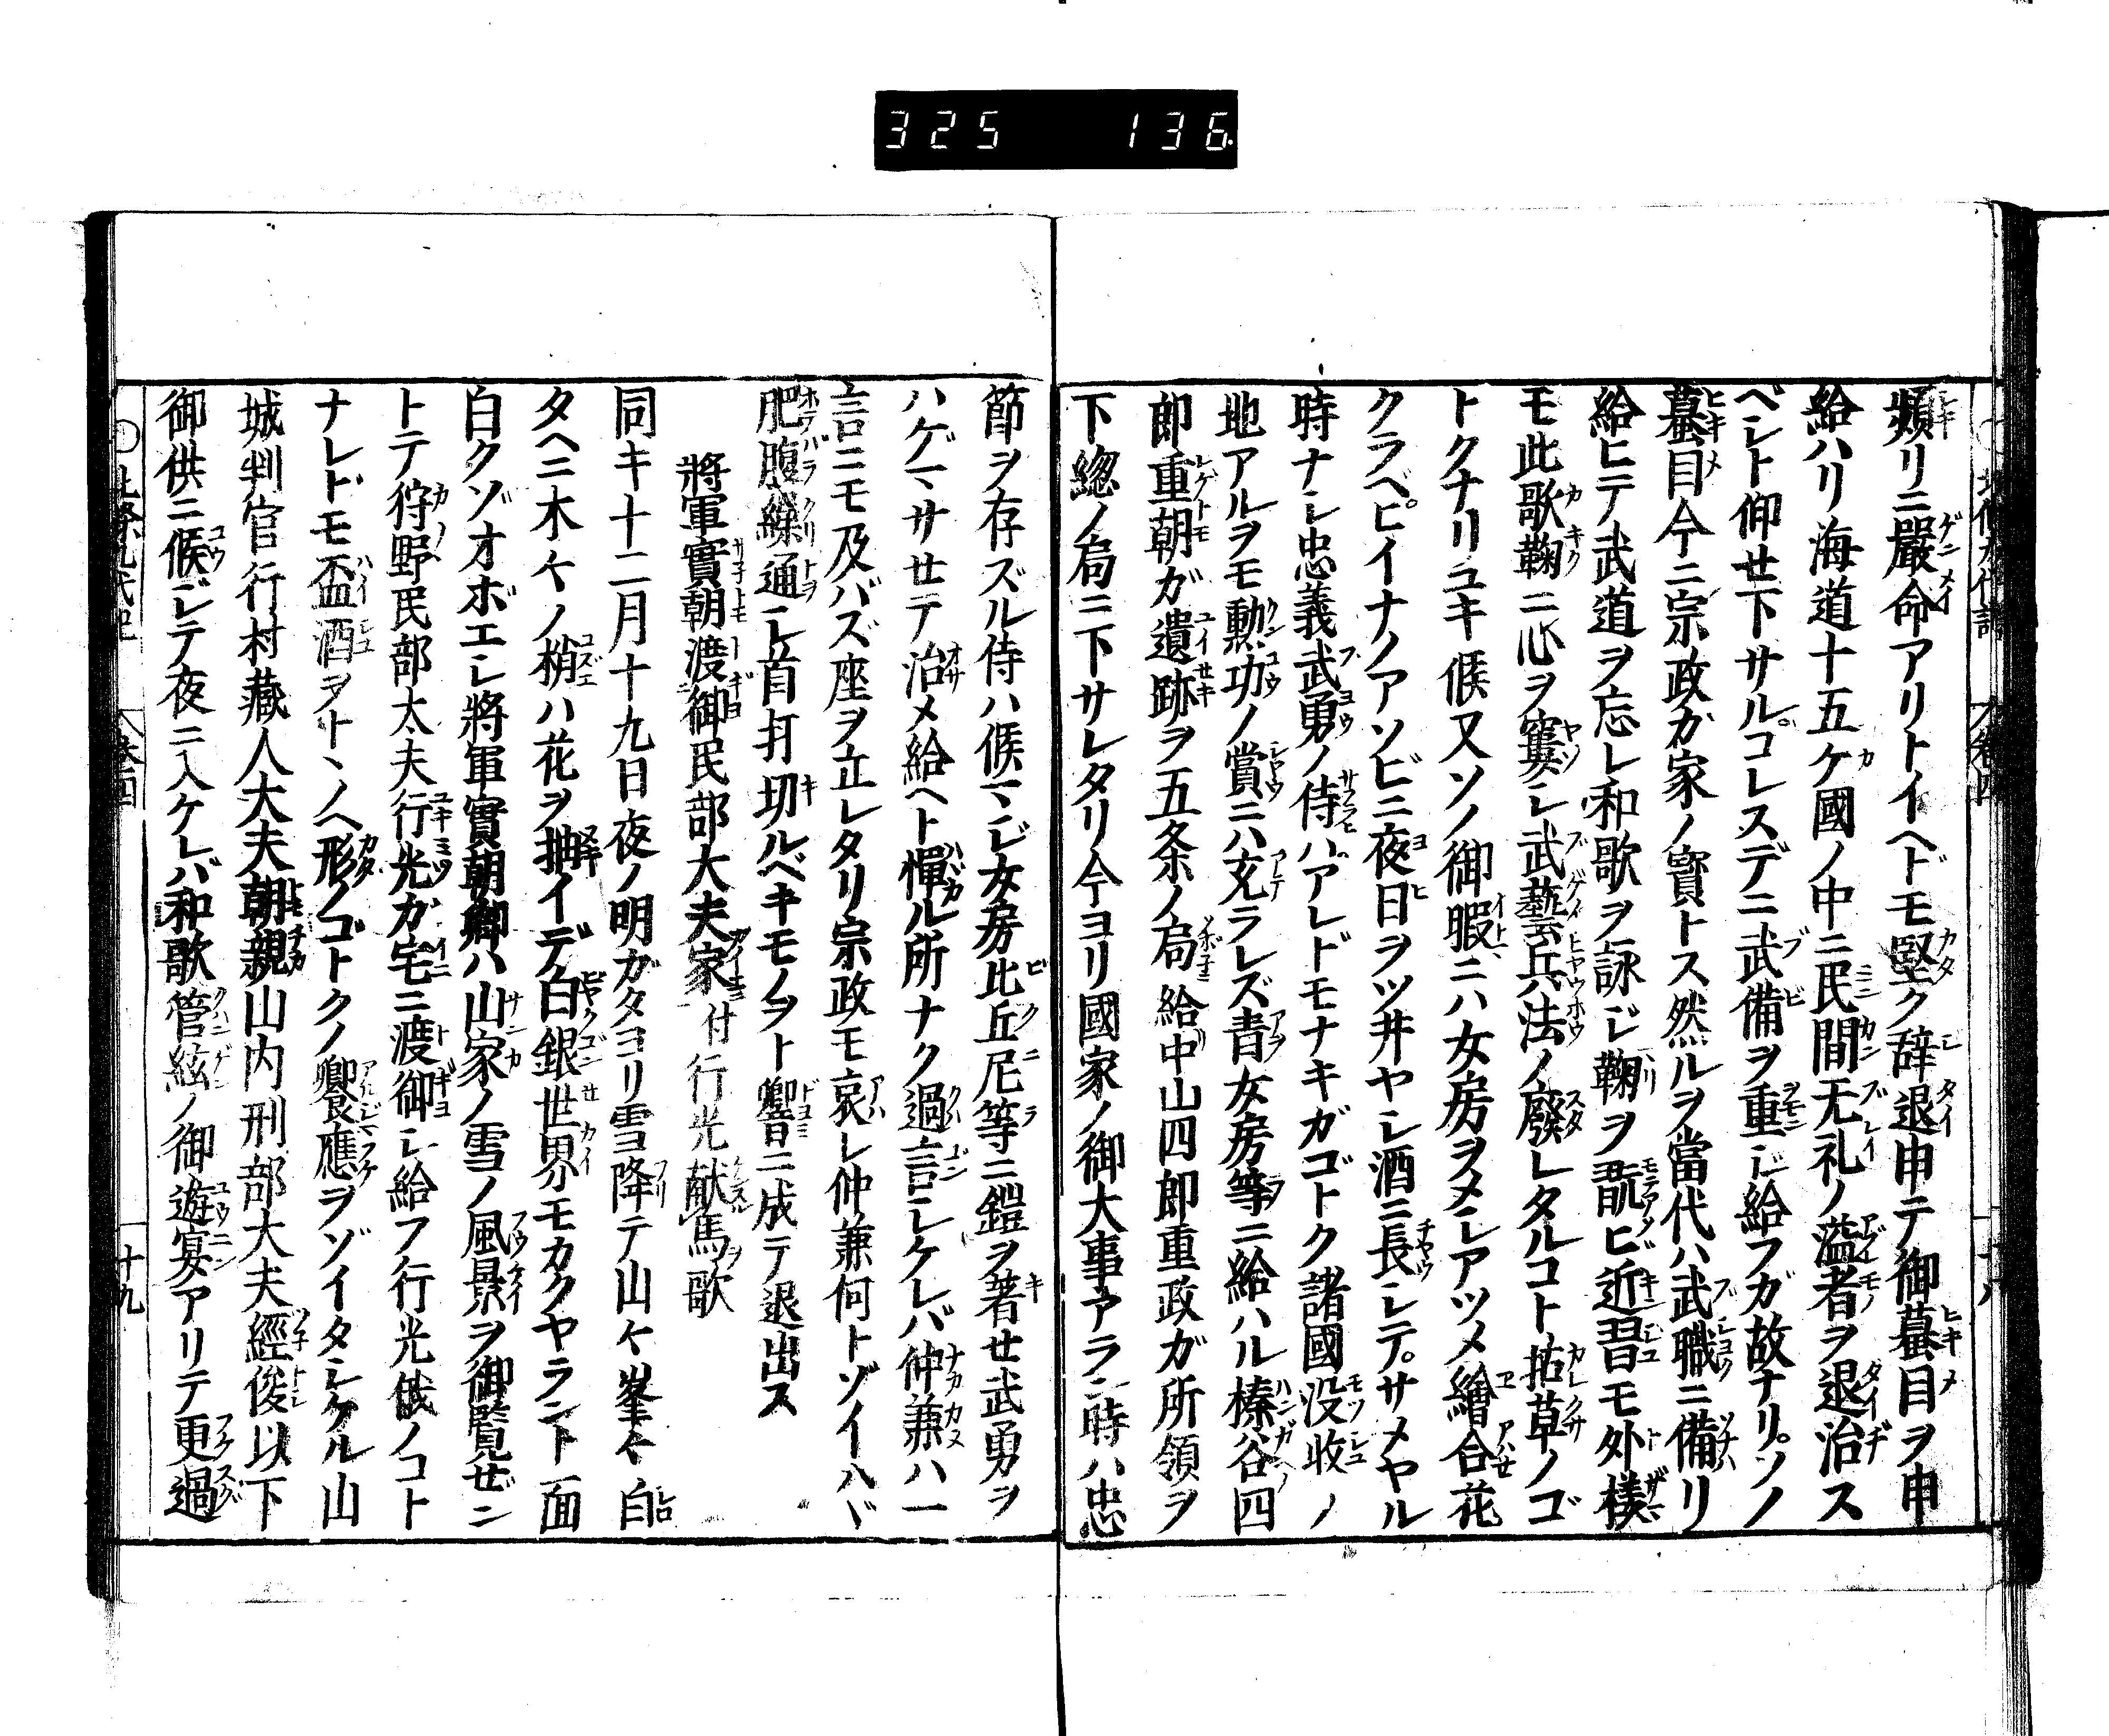 325 136
頻リニ嚴命アリトイヘドモ堅ク辞退申テ御蟇目ヲ申
給ハリ海道十五ケ國ノ中ニ民間无礼ノ溢者ヲ退治ス
ベシト仰セ下サルコレスデニ武備ヲ重ジ給フガ故ナリソノ
蟇目今ニ宗政ガ家ノ寳トス然ルヲ當代ハ武職ニ備リ
給ヒテ武道ヲ忘レ和歌ヲ詠ジ鞠ヲ翫ヒ近習モ外様
モ此歌鞠ニ心ヲ窶シ武藝兵法ノ廢レタルコト拈草ノゴ
トクナリユキ候又ソノ御暇ニハ女房ヲメシアツメ繪合花
クラベヒイナノアソビニ夜日ヲツ井ヤシ酒ニ長シテサメヤル
時ナシ忠義武勇ノ侍ハアレドモナキガゴトク諸國没收ノ
地アルヲモ勲功ノ賞ニハ充ラレズ青女房等ニ給ハル榛谷四
郎重朝ガ遺跡ヲ五条ノ局給中山四郎重政ガ所領ヲ
下総ノ局ニ下サレタリ今ヨリ國家ノ御大事アラン時ハ忠
節ヲ存ズル侍ハ候マジ女房比丘尼等ニ鎧ヲ著セ武勇ヲ
ハゲマサセテ治メ給ヘト憚ル所ナク過言シケレバ仲兼ハ一
言ニモ及バズ座ヲ立レタリ宗政モ哀レ仲兼何トゾイハヾ
肥腹繰通シ首打切ルベキモノヲト響ニ成テ退出ス
將軍實朝渡御民部大夫家付行光献馬歌
同キ十二月十九日夜ノ明ガタヨリ雪降テ山々峯々白
タヘニ木々ノ梢ハ花ヲ抽イデ白銀世界モカクヤラント面
白クゾオボエシ將軍實朝卿ハ山家ノ雪ノ風景ヲ御覧ゼン
トテ狩野民部太夫行光ガ宅ニ渡御シ給フ行光俄ノコト
ナレドモ盃酒ヲトヽノヘ形ノゴトクノ饗應ヲゾイタシケル山
城判官行村藏人大夫朝親山内刑部大夫經俊以下
御供ニ候ジテ夜ニ入ケレバ和歌管絃ノ御遊宴アリテ更過
巻四
十九